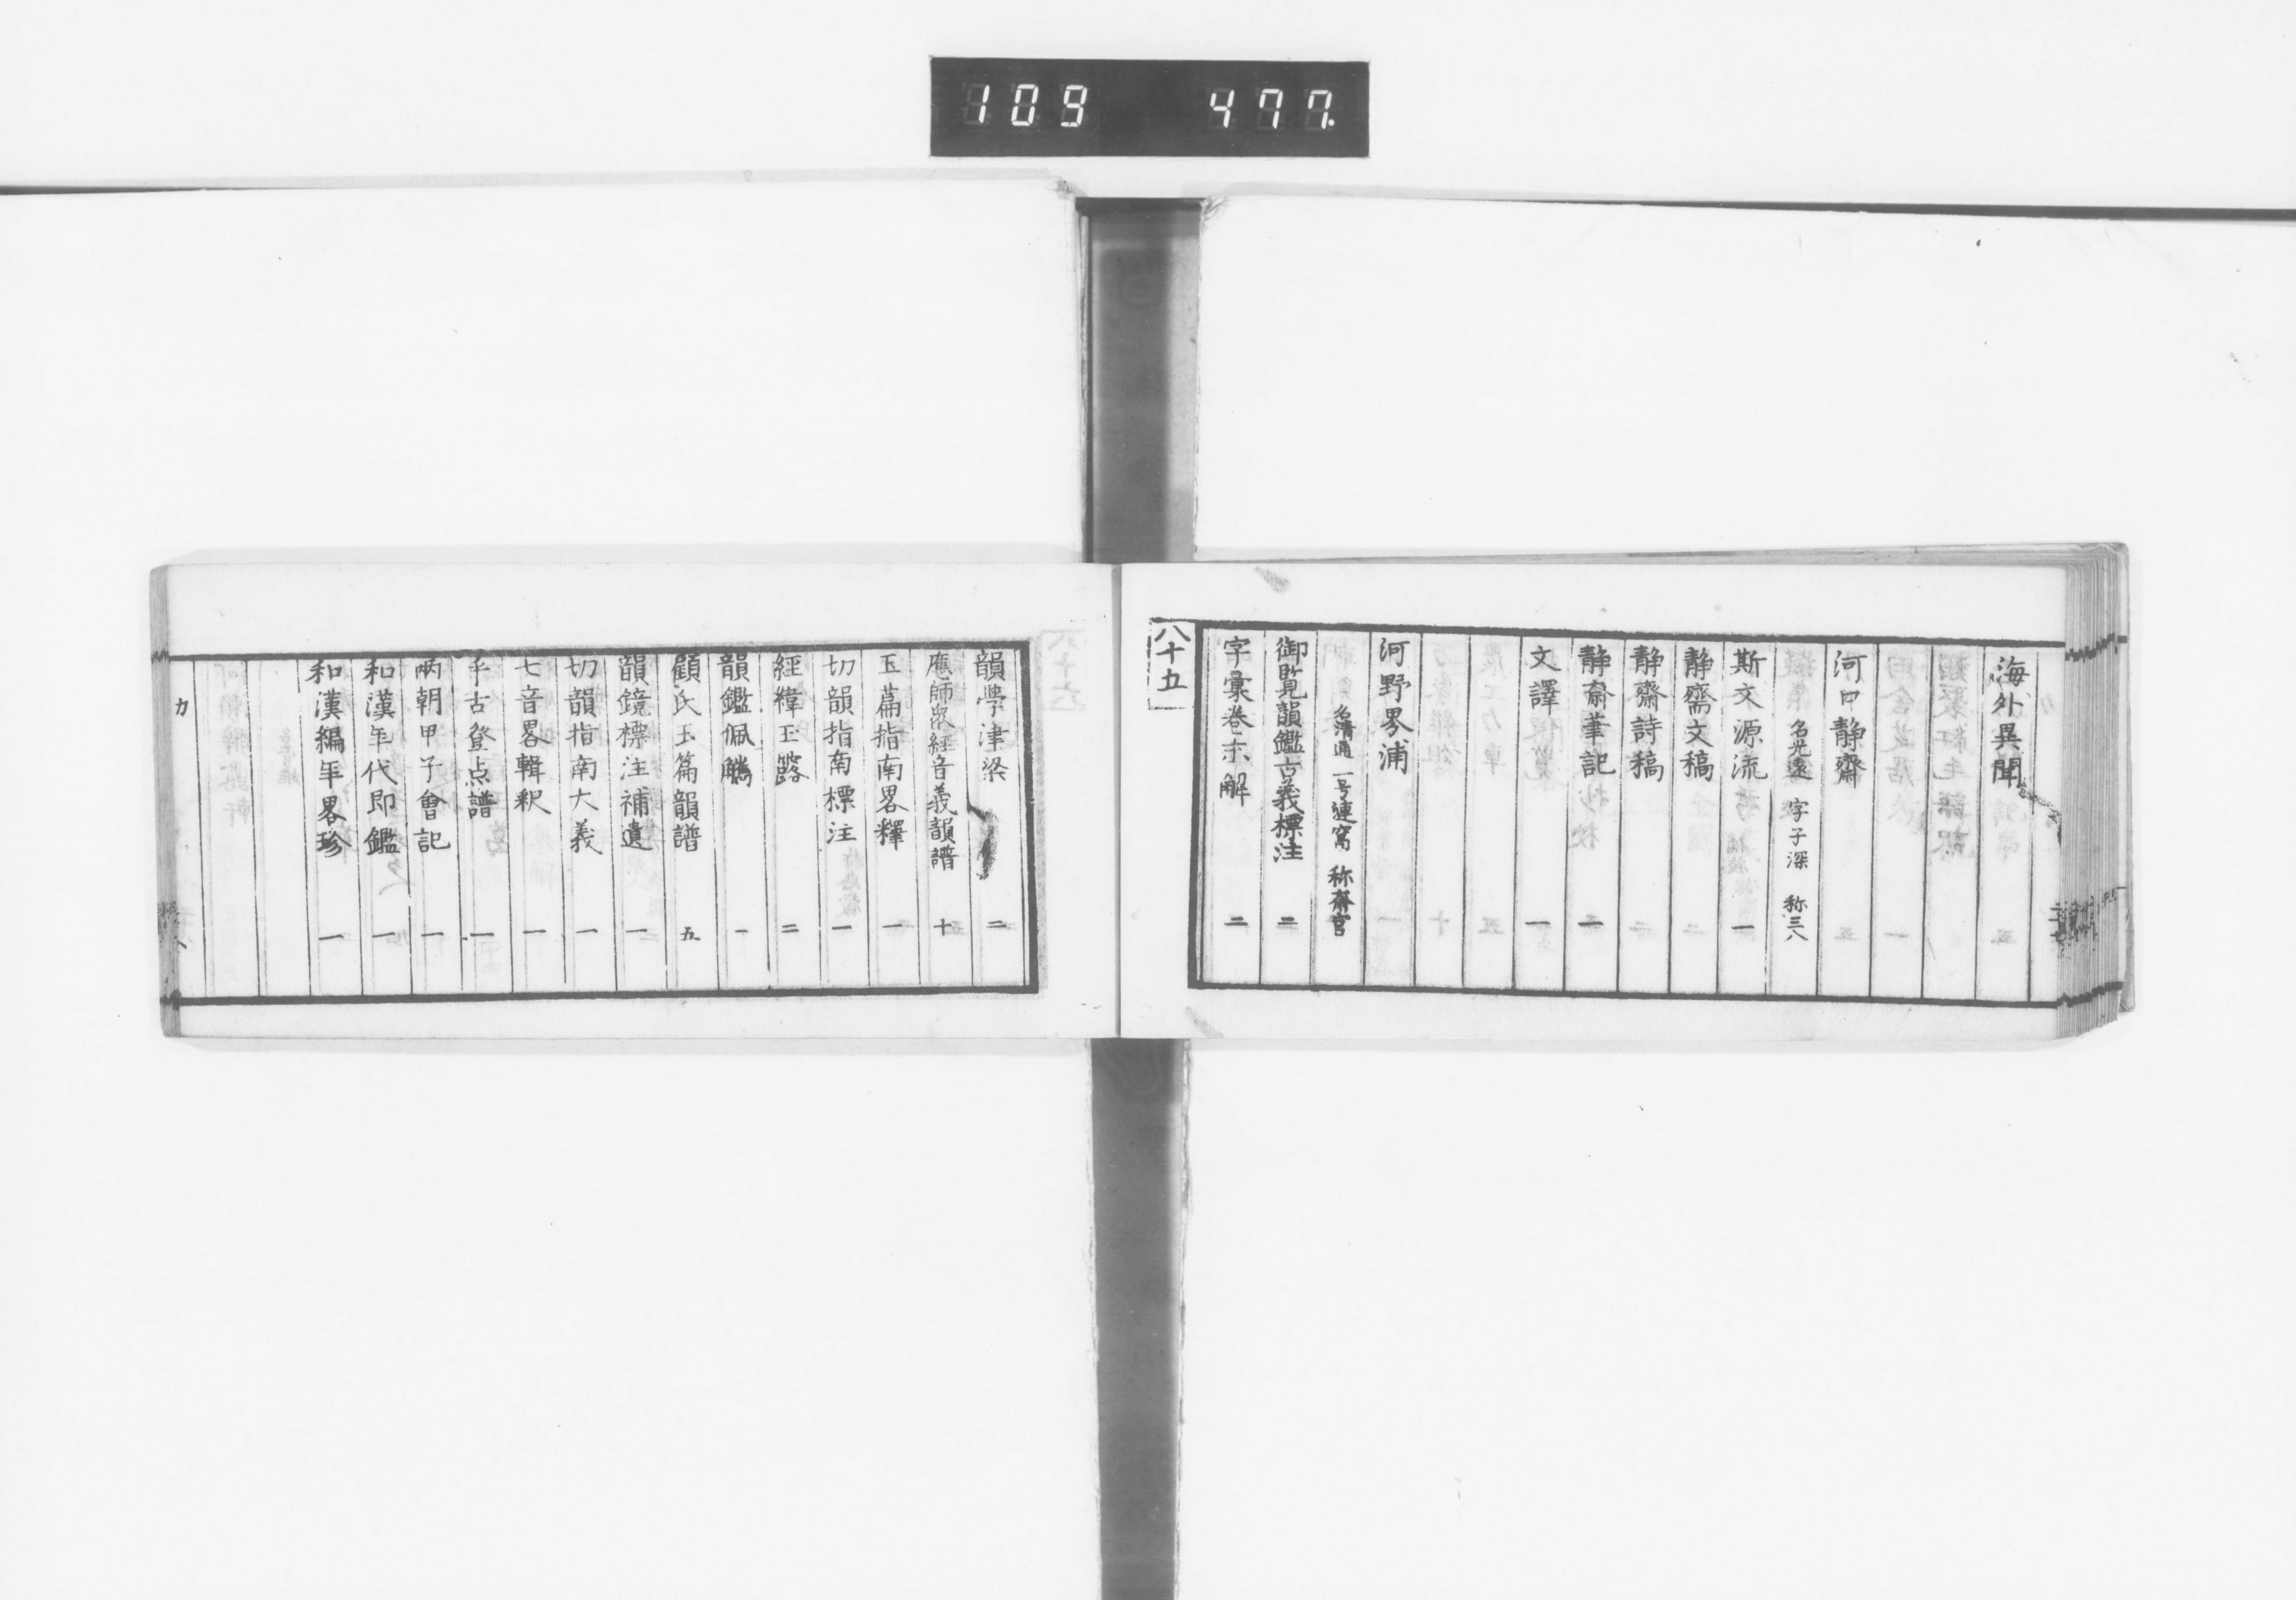 109 477.
海外異聞 五
河口静齋
名光遠 字子深 称三八
斯文源流 一
静齋文稿 二
静齋詩稿 二
静齋筆記 二
文譯 一
河野界浦
名清通 一号蓮窩 称齋宮
御覧韻鑑古義標注 二
字彙巻末解 二
八十五
韻學津梁 二
應師衆経音義韻譜 十
玉篇指南畧釋 一
切韻指南標注 一
經緯玉露 二
韻鑑佩觿 一
顧氏玉篇韻譜 五
韻鏡標注補遺 一
切韻指南大義 一
七音畧輯釈 一
乎古登点譜 一
両朝甲子會記 一
和漢年代即鑑 一
和漢編年畧珍 一
カ